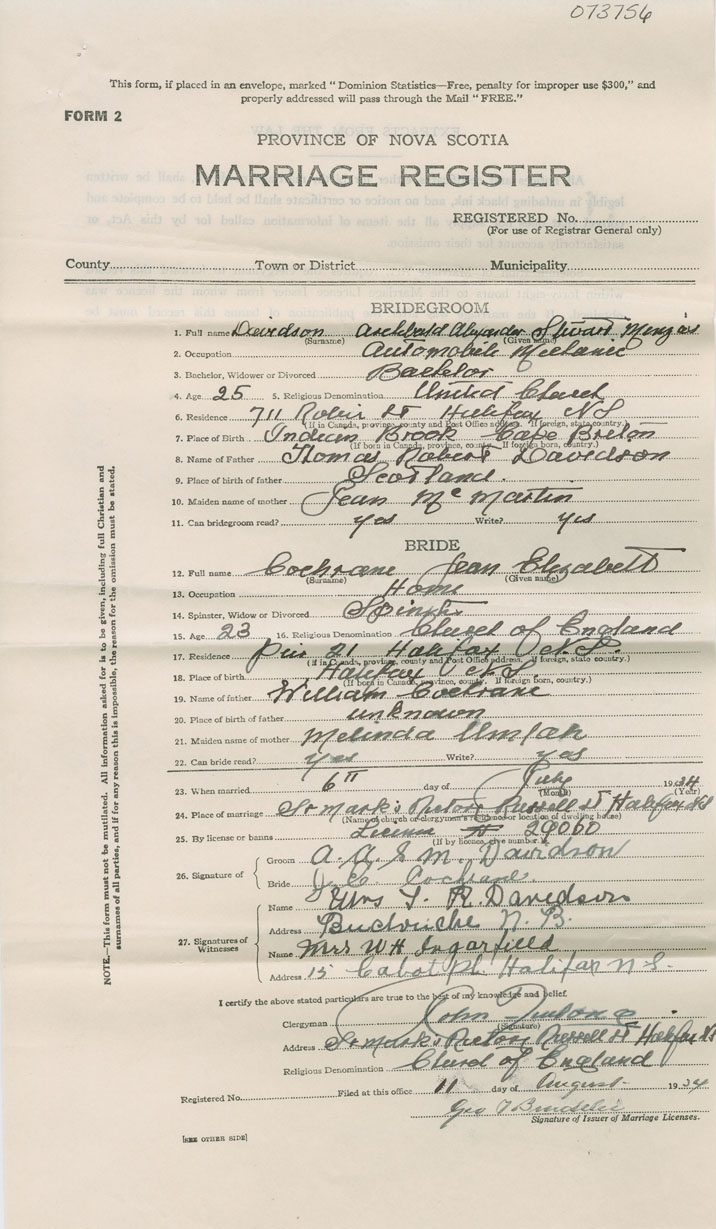 073756
This form, if placed in an envelope, marked " Dominion Statistics—Free, penalty for improper use $300," and
properly addressed will pass through the Mail " FREE."
FORM 2
PROVINCE OF NOVA SCOTIA
MARRIAGE REGISTER
REGISTERED No.
(For use of Registrar General only)
County Town or District Municipality
BRIDEGROOM
1. Full name Davidson Archibald Alexander Stewart Menzies
(Surname) (Given name)
2. Occupation Automobile Mechanic
3. Bachelor, Widower or Divorced Bachelor
4. Age 25 5. Religious Denomination United Church
6. Residence 711 Robie St Halifax N S
(If in Canada, province, county and Post Office address. If foreign, state country.)
7. Place of Birth Indian Brook Cape Breton
(If born in Canada, province, county. If foreign born, country.)
8. Name of Father Thomas Robert Davidson
9. Place of birth of father Scotland.
10. Maiden name of mother Jean Mc Martin
11. Can bridegroom read? yes Write? yes
BRIDE
12. Full name Cochrane Jean Elizabeth
(Surname) (Given name)
13. Occupation Home
14. Spinster, Widow or Divorced Spinster
15. Age 23 16. Religious Denomination Church of England
17. Residence Pier 21 Halifax N.S.
(If in Canada, province, county and Post Office address. If foreign, state country.)
18. Place of birth Halifax N.S.
(If born in Canada, province, county. If foreign born, country.)
19. Name of father William Cochrane
20. Place of birth of father unknown
21. Maiden name of mother Melinda Umlah
22. Can bride read? yes Write? yes
23. When married 6th day of July 1934
(Month) (Year)
24. Place of marriage St Mark's Rectory Russell St Halifax NS
(Name of church or clergyman's residence or location of dwelling house)
25. By license or banns License # 29060
(If by license, give number.)
26. Signature of
Groom A. A. S. M. Davidson
Bride J. E. Cochrane.
27. Signatures of Witnesses
Name Mrs T. R. Davidson
Address Buctouche N. B.
Name Mrs W H Ingarfield
Address 15 Cabot Pl Halifax N S.
I certify the above stated particulars are true to the best of my knowledge and belief.
Clergyman John
(Signature)
Address St Mark's Rectory Russell St Halifax NS
Religious Denomination Church of England
Registered No. Filed at this office 11 day of August 1934
Geo T
Signature of Issuer of Marriage Licenses.
[SEE OTHER SIDE]
NOTE.—This form must not be mutilated. All information asked for is to be given, including full Christian and
surnames of all parties, and if for any reason this is impossible, the reason for the omission must be stated.